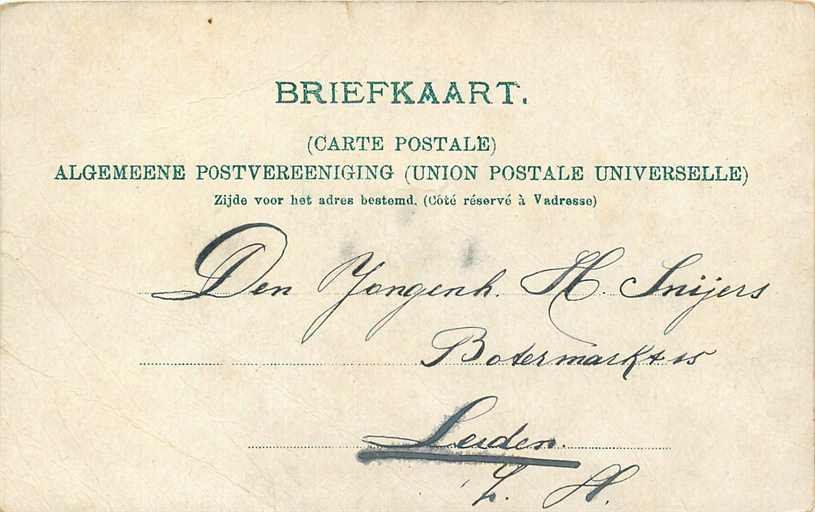 BRIEFKAART.
(CARTE POSTALE)
ALGEMEENE POSTVEREENIGING (UNION POSTALE UNIVERSELLE)
Zijde voor het adres bestemd. (Côté réservé à Vadresse)
Den Jongenh. H. Snijers
Botermarkt 15
Leiden.
Z. H.